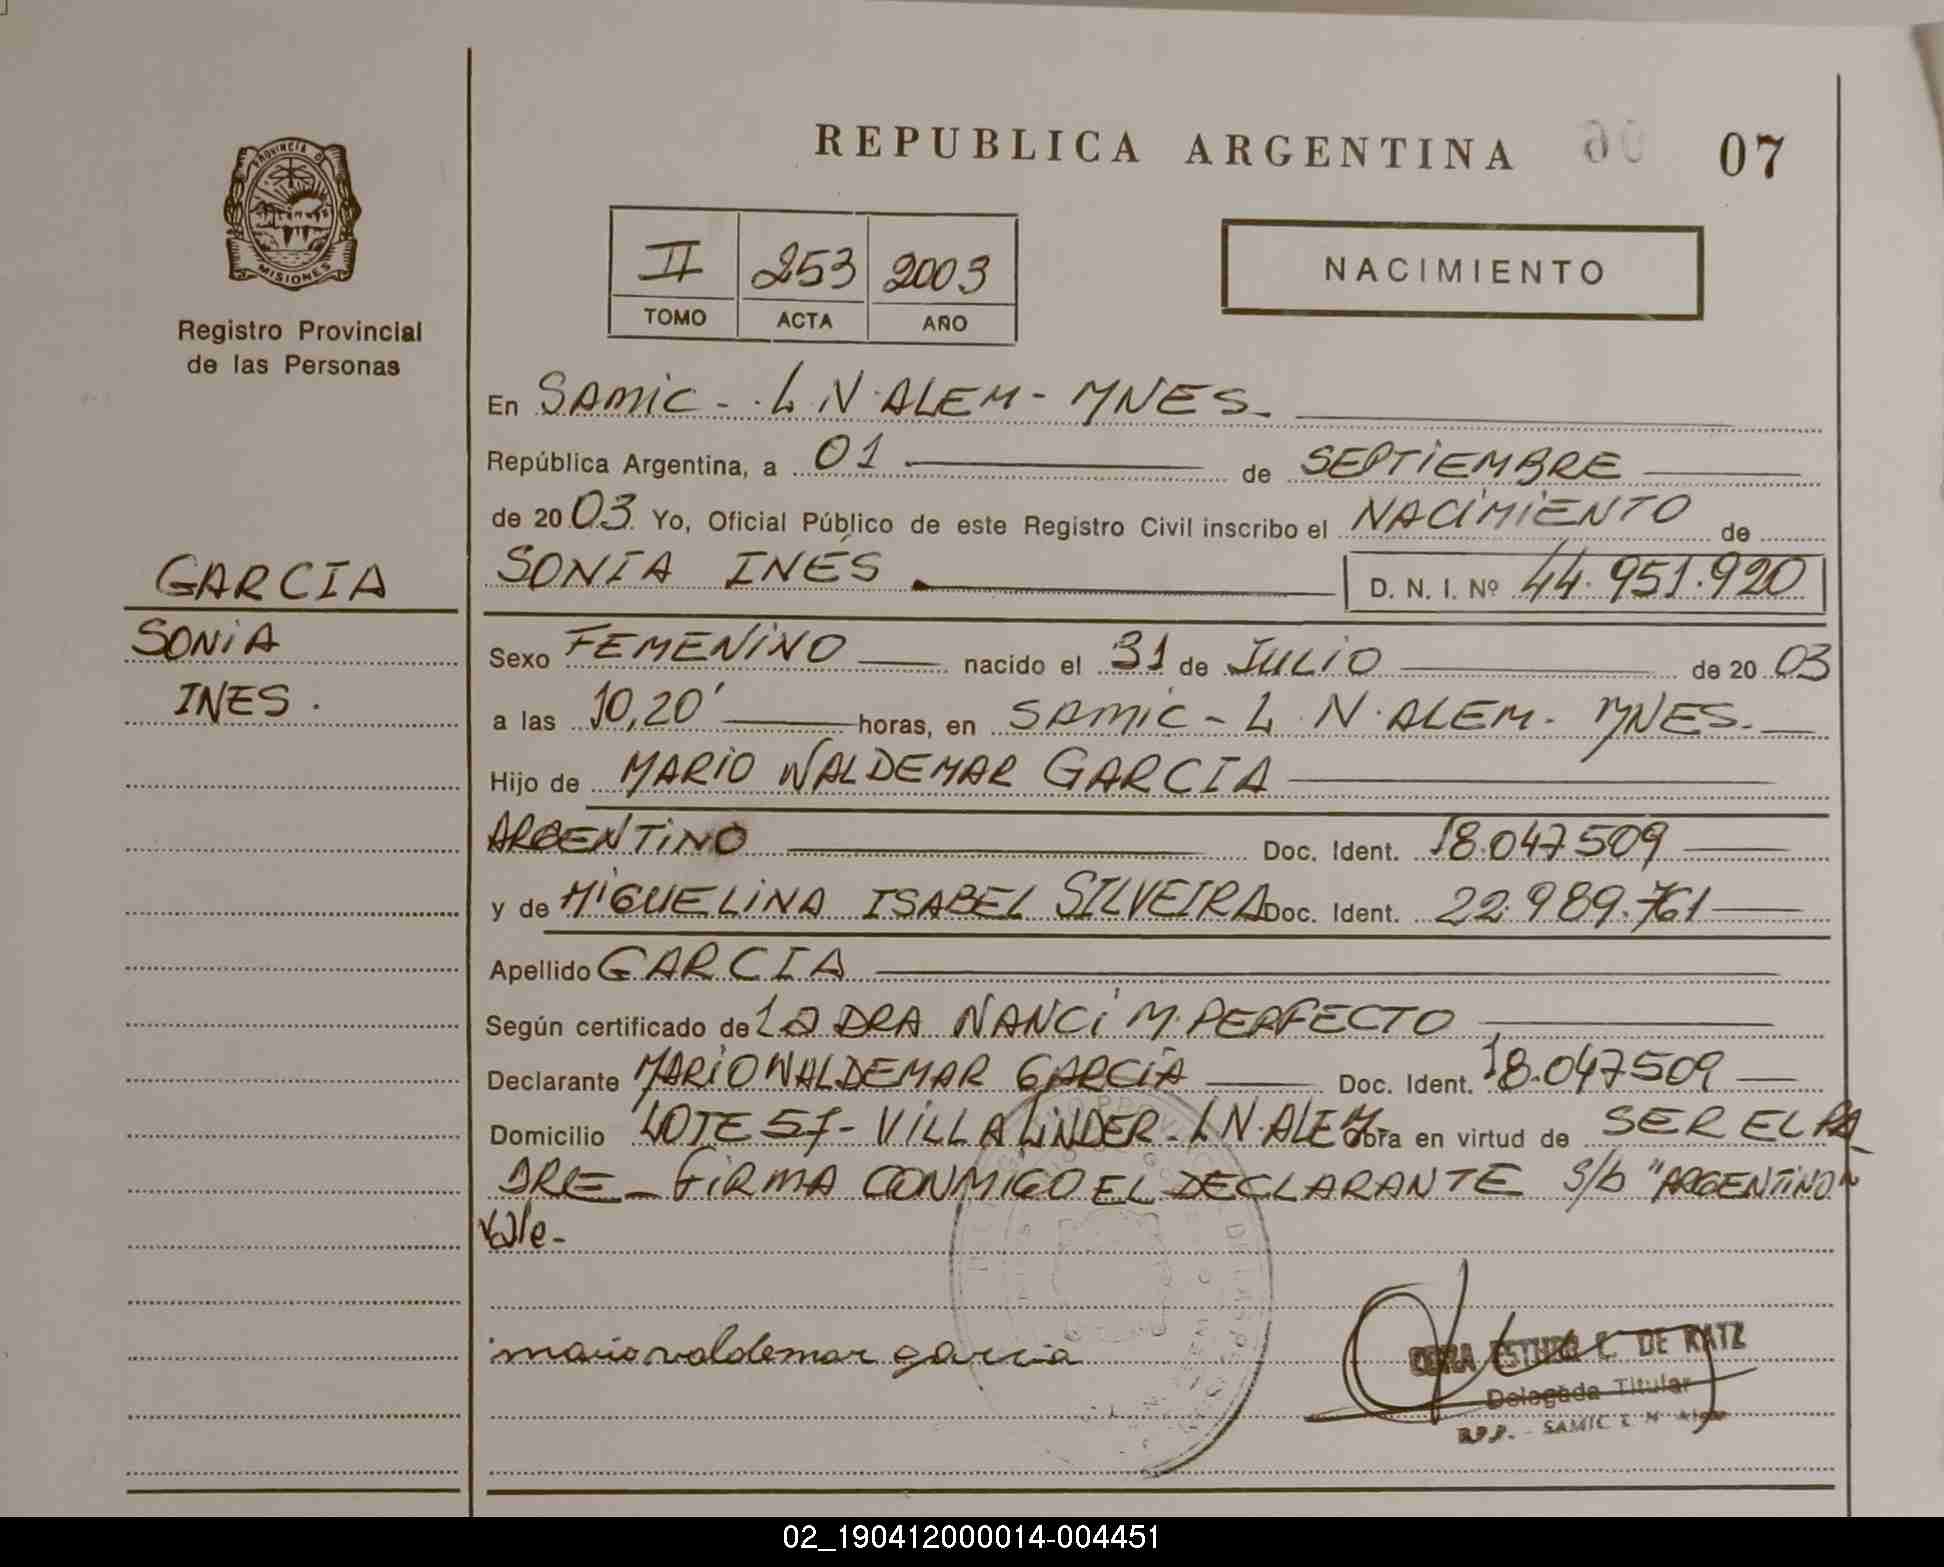 REPUBLICA ARGENTINA 06 07
PROVINCIA D
MISIONES
Registro Provincial
de las Personas
II 253 2003
TOMO ACTA AÑO
NACIMIENTO
GARCIA
SONIA
INES.
En SAMIC - L N. ALEM - MNES.
República Argentina, a 01 de SEPTIEMBRE
de 2003. Yo, Oficial Público de este Registro Civil inscribo el NACIMIENTO de
SONIA INÉS D. N. I. Nº 44.951.920
Sexo FEMENINO nacido el 31 de JULIO de 2003
a las 10,20' horas, en SAMIC - L. N. ALEM - MNES.
Hijo de MARIO WALDEMAR GARCIA
ARGENTINO Doc. Ident. 18.047509
y de MIGUELINA ISABEL SILVEIRA Doc. Ident. 22.989.761
Apellido GARCIA
Según certificado de La DRA NANCI M. PERFECTO
Declarante MARIO WALDEMAR GARCÍA Doc. Ident. 18.047509
Domicilio LOTE 57 - VILLA LINDER - L N. ALEM Obra en virtud de SER EL PA
DRE - FIRMA CONMIGO EL DECLARANTE S/b "ARGENTINO"
Vale-
mario valdemar garcia
ESTHER C. DE KATZ
Delegada Titular
R.P.P. - SAMIC L N Alem
02_190412000014-004451